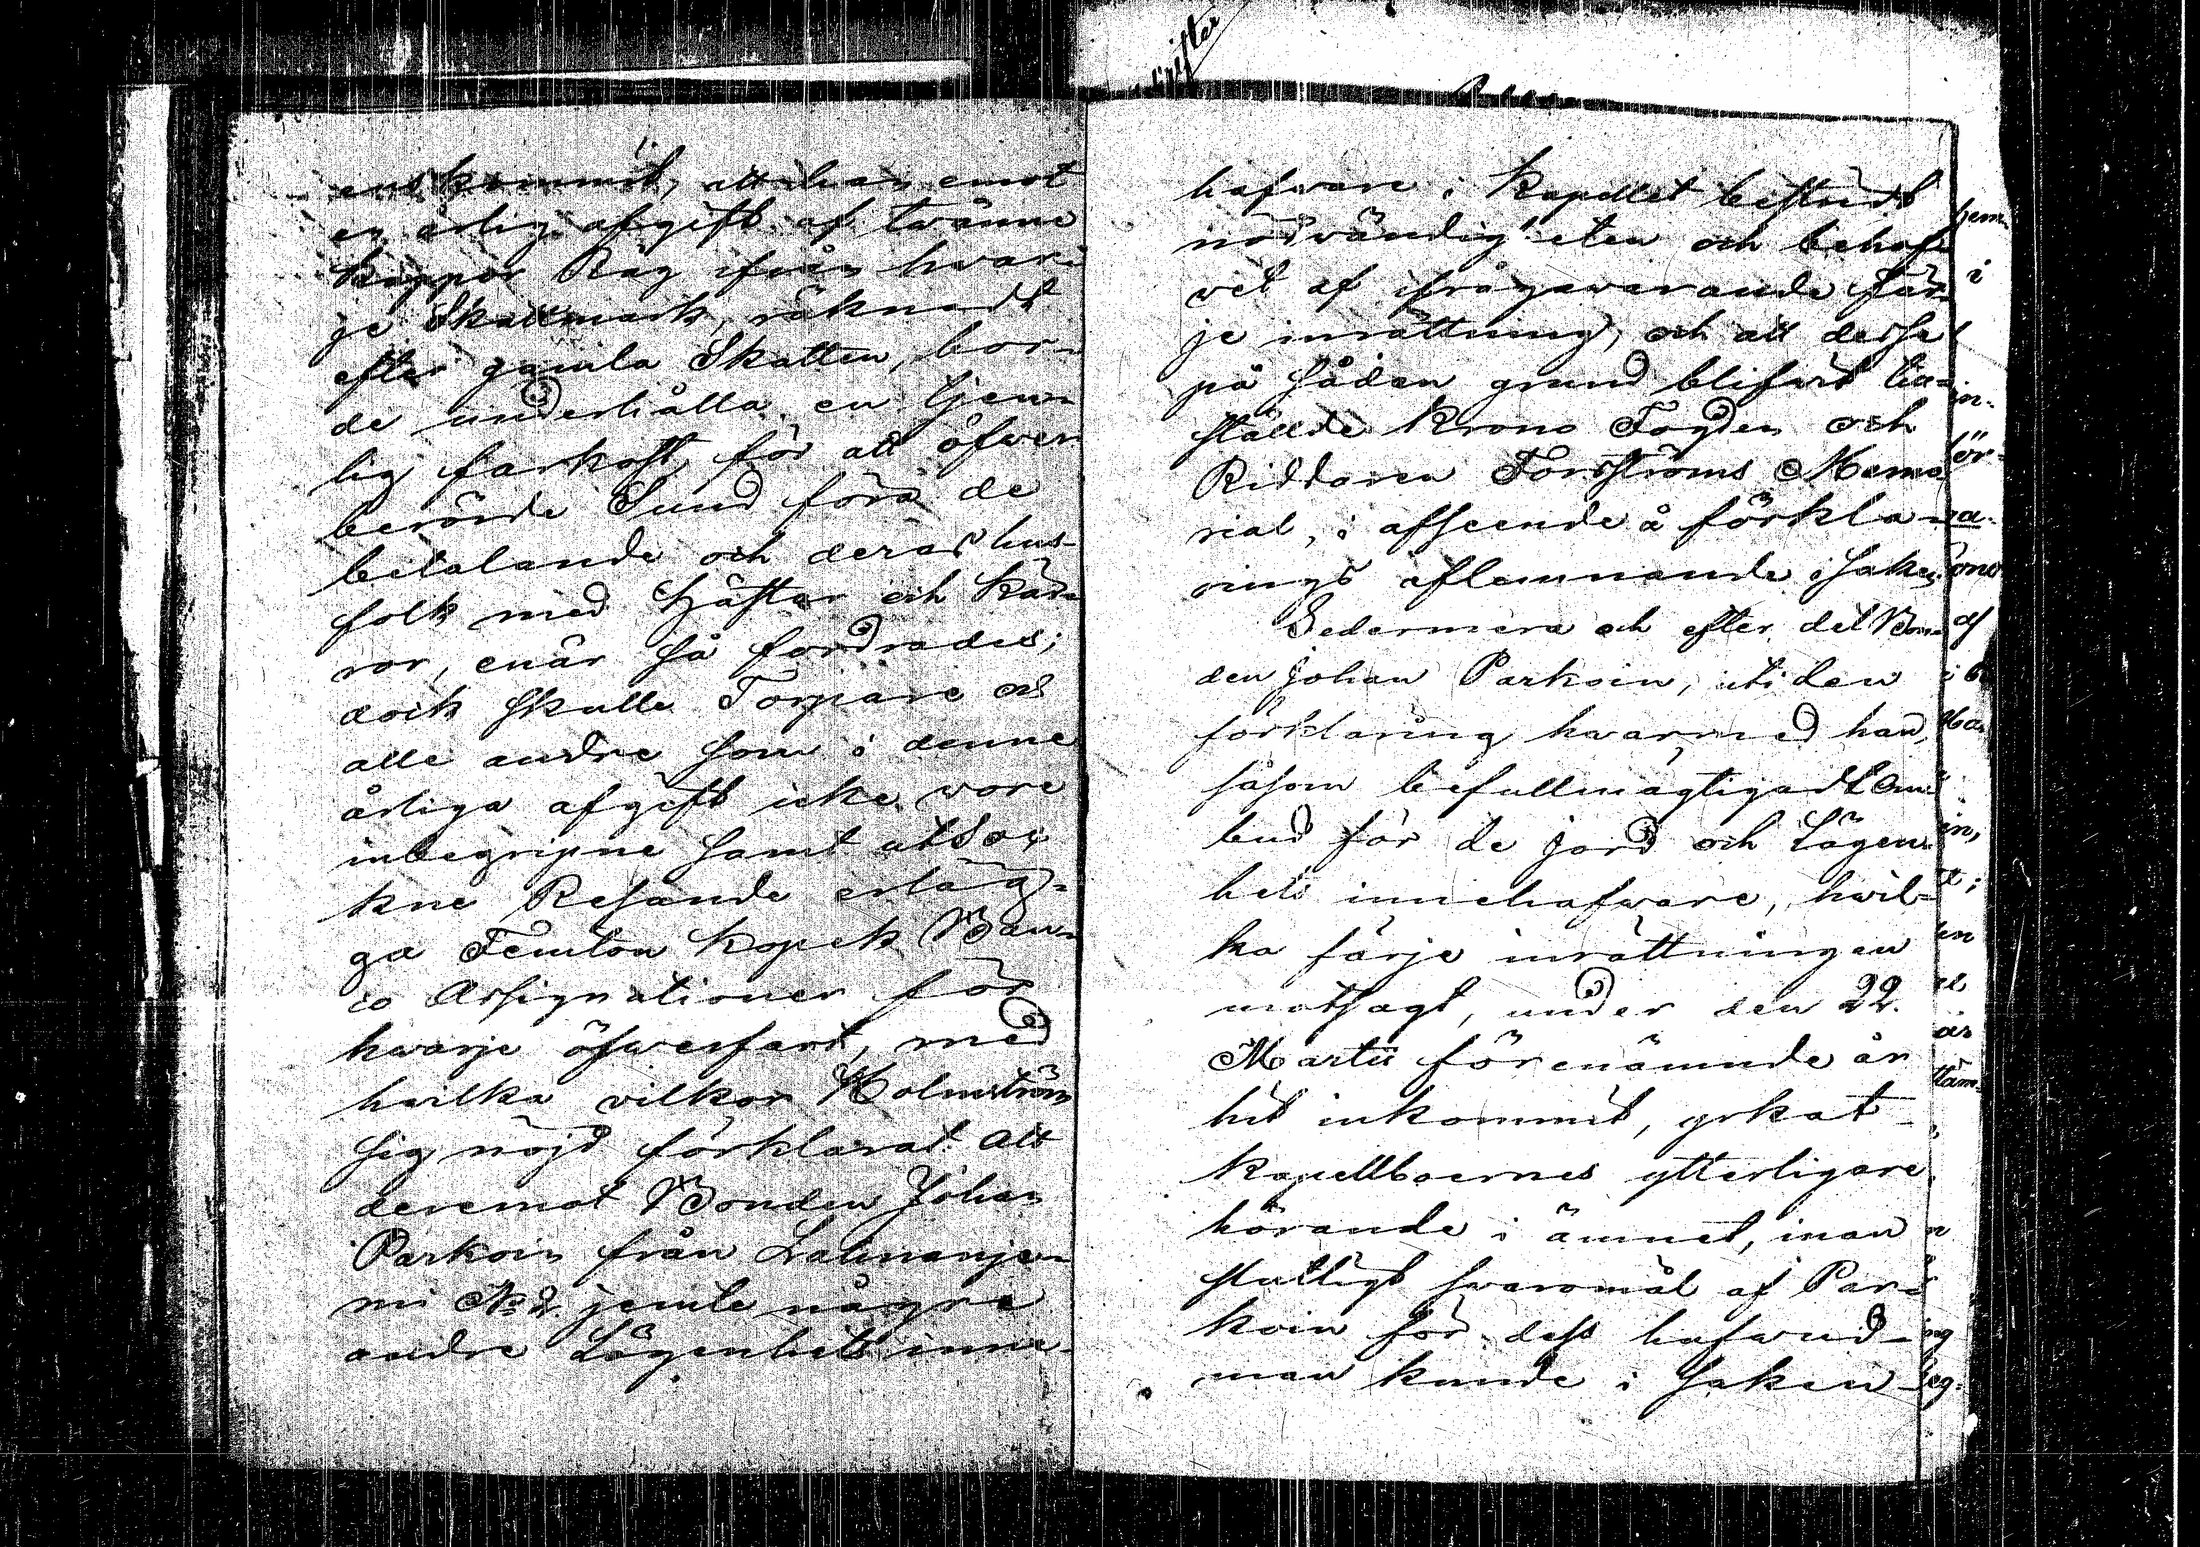 enskommit, att han emot
en årlig afgift af twänne
kappor Råg ifrån hwar-
je Skattmark, räknadt
efter gamla Skatten, bor-
de underhålla en tjen-
lig farkost, för att öfwer
berörde Sund föra de
betalande och deras hus-
folk med Hästar och Kär-
ror, enär så fordrades;
dock skulle Torpare och
alle andre som i denne
årliga afgift icke wore
inbegripne samt utsok
kne Resande erläg-
ga Femton kopek Ban-
co Assignationer för
hwarje öfwerfart, med
hwilka vilkor Holmström
sig nöjd förklarat. Att
deremot Bonden Johan
Parkoin från Lahnanje-
mi № 2. jemte några
andre Lägenhets inne-
hafware i Kapellet bestridt
nödwändigheten och behof-
vet af ifrågawarande Fär-
je inrättning, och att desse
på sådan grund blifwit
ställde Krono Fogden och
Riddaren Forsströms Memo
rial, i afseende å förkla-
rings aflemnande i saken.
Sedermera och efter det Bon-
den Johan Parkoin, uti den
förklaring hwarmed han,
såsom befullmägtigadt Om-
bud för de jord och Lägen-
hets innehafware, hwil-
ka färje inrättningen
motsagt, under den 22.
Martii förenämnde år
hit inkommit, yrkat
kapellboernes ytterligare
hörande i ämnet, inan
slutligt swaromål af Par-
koin för dess hufwud-
man kunde i saken